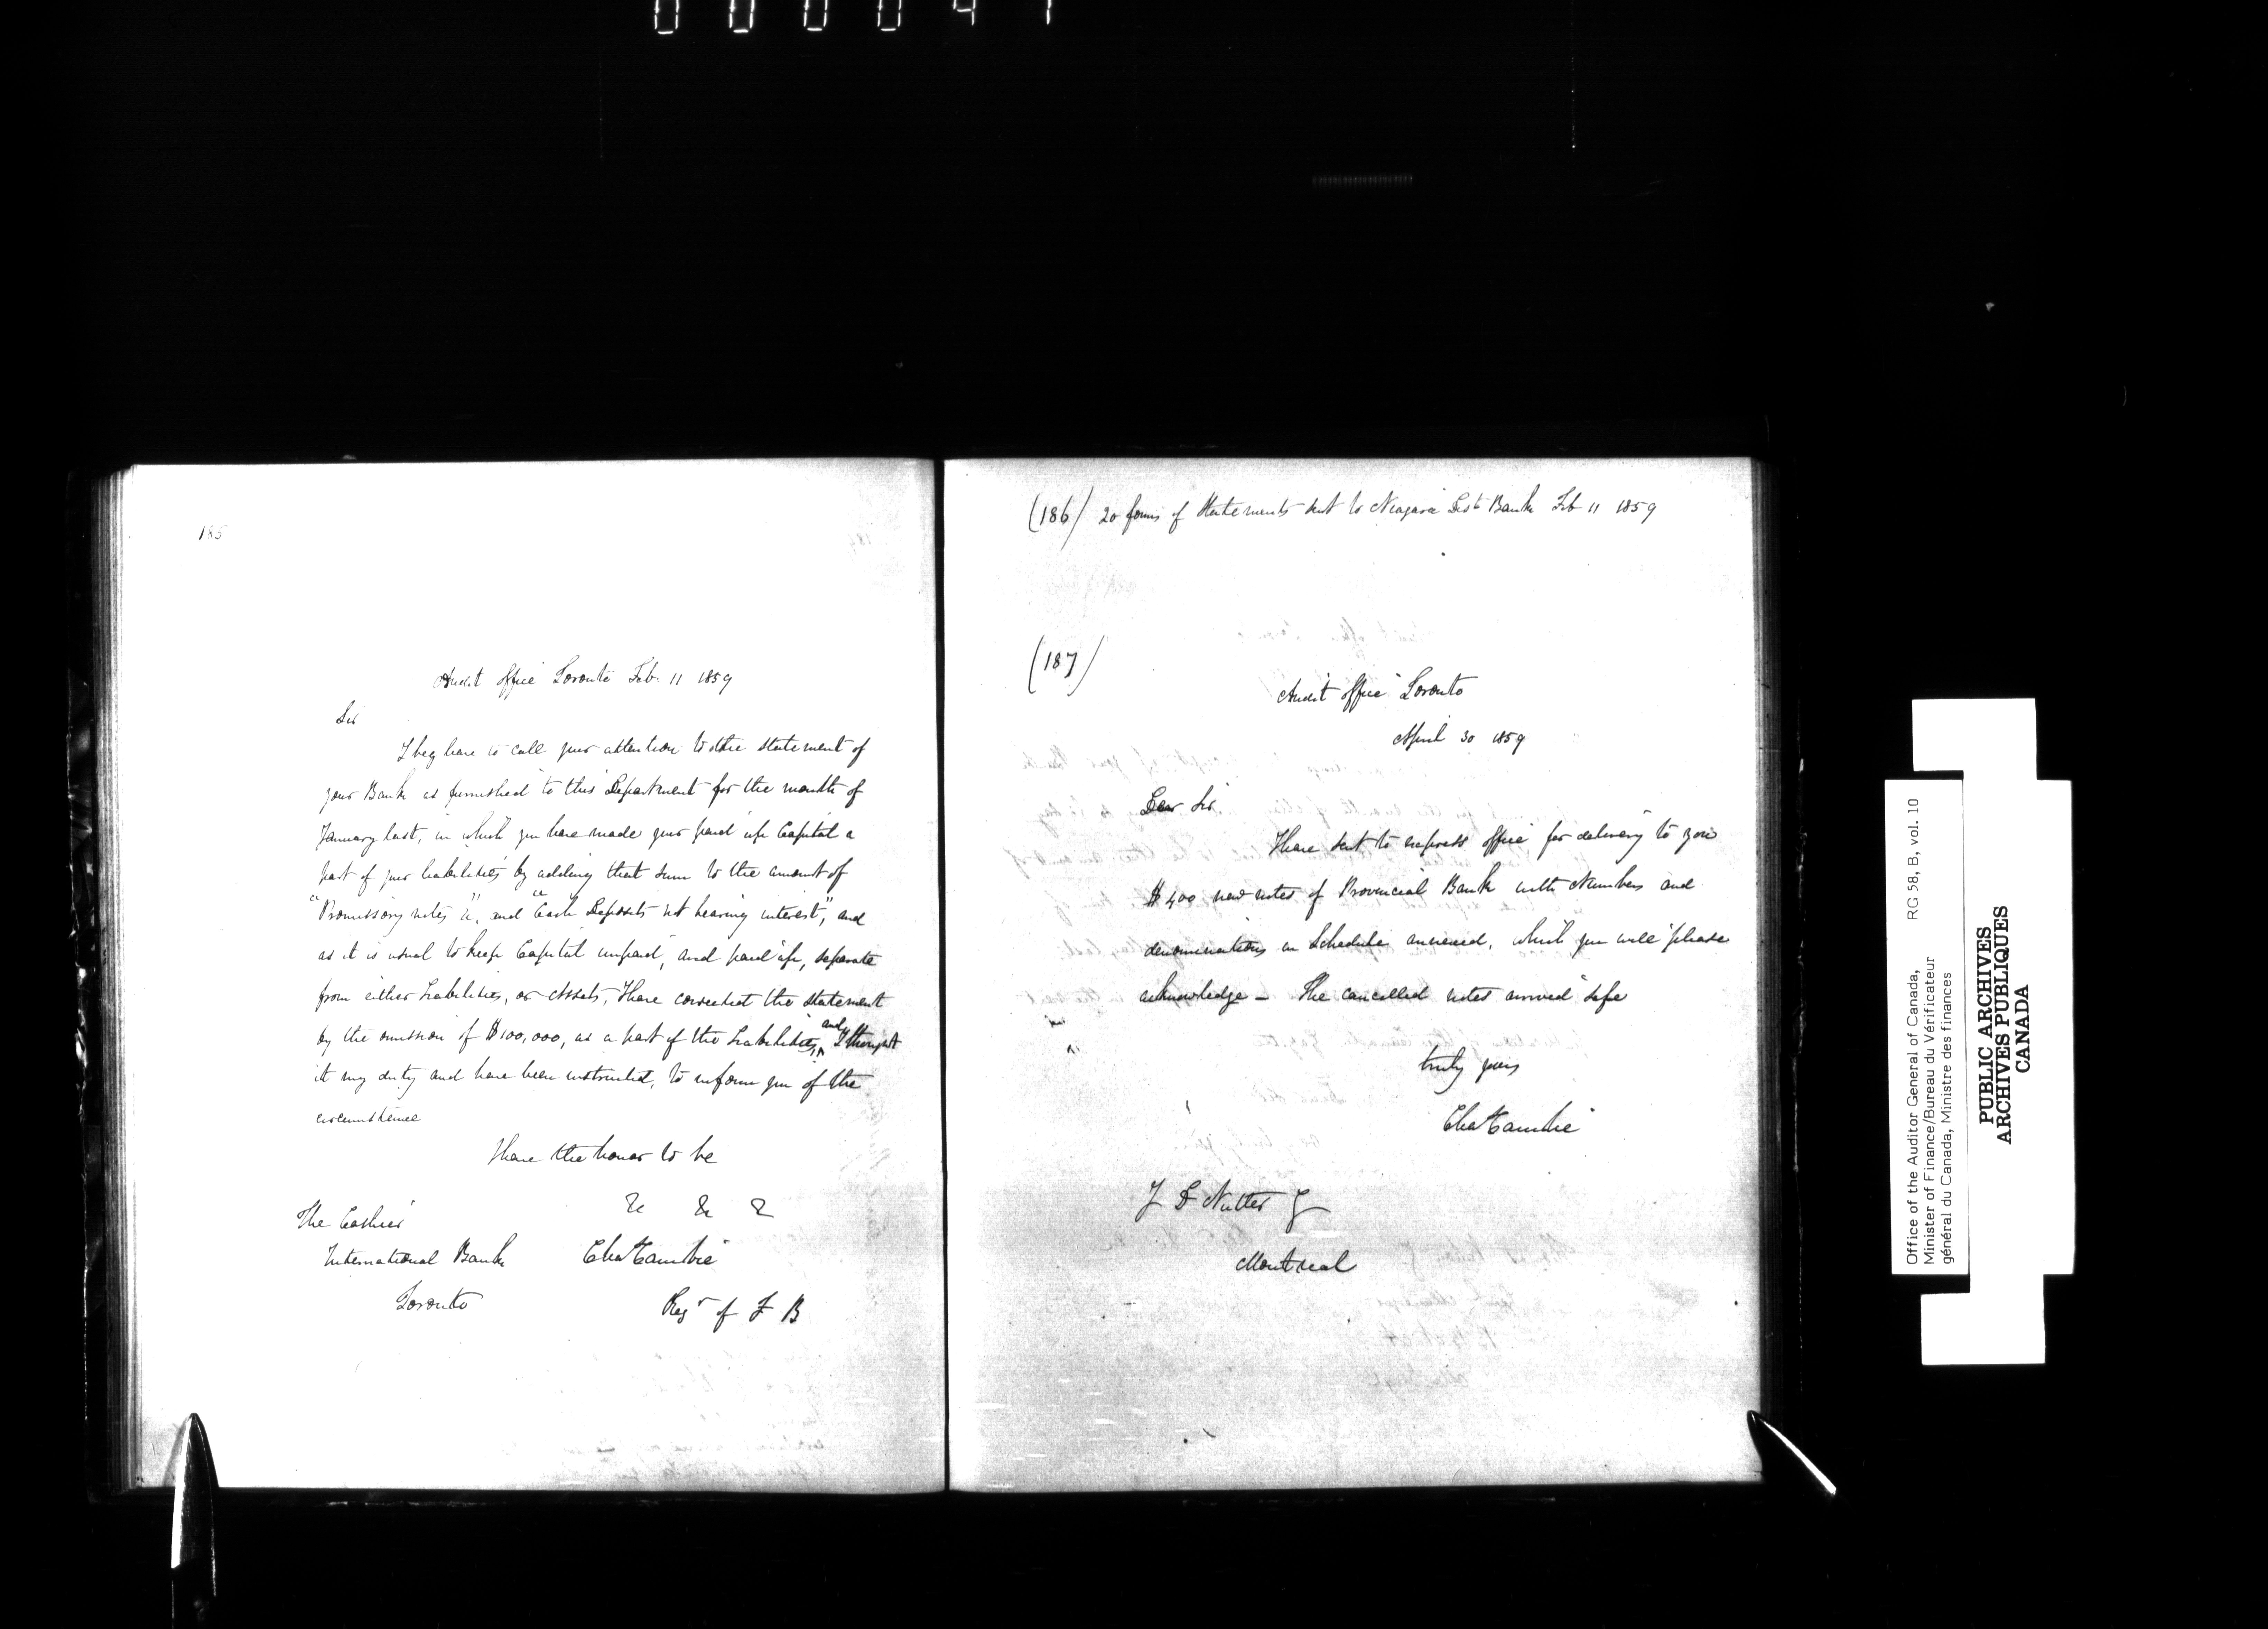 000047
185
Audit Office Toronto Feb. 11 1859
Sir
I beg leave to call your attention to the statement of
your Bank as furnished to this Department for the month of
January last, in which you have made your paid up Capital a
part of your liabilities by adding that sum to the amount of
"Promissory notes &c", and "Cash Deposits not bearing interest", and
as it is usual to keep Capital unpaid, and paid up, separate
from either Liabilities, or Assets, I have corrected the statement
by the omission of $100,000, as a part of the Liabilities, and I thought
it my duty and have been instructed, to inform you of the
circumstance
I have the honor to be
&c &c &c
The Cashier
International Bank
Toronto
Chas Cambie
Regr of F B
(186) 20 forms of Statements sent to Niagara Dist Bank Feb 11 1859
(187)
Audit Office Toronto
April 30 1859
Dear Sir
I have sent to express office for delivery to you
$400 new notes of Provincial Bank with Numbers and
denominations in Schedule annexed, which you will please
acknowledge – The cancelled notes arrived safe
truly yours
Chas Cambie
J D Nutter
Montreal
Office of the Auditor General of Canada,
Minister of Finance/Bureau du Vérificateur
général du Canada, Ministre des finances
RG 58, B, vol. 10
PUBLIC ARCHIVES
ARCHIVES PUBLIQUES
CANADA